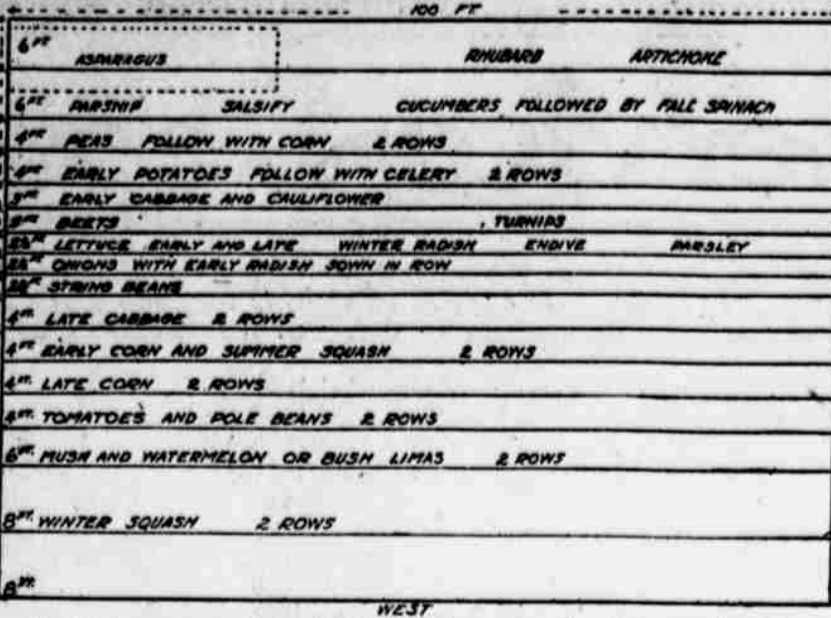 100 FT
6 FT ASPARAGUS RHUBARB ARTICHOKE
6 FT PARSNIP SALSIFY CUCUMBERS FOLLOWED BY FALL SPINACH
4 FT PEAS FOLLOW WITH CORN 2 ROWS
4 FT EARLY POTATOES FOLLOW WITH CELERY 2 ROWS
3 FT EARLY CABBAGE AND CAULIFLOWER
FT BEETS , TURNIPS
FT LETTUCE EARLY AND LATE WINTER RADISH ENDIVE PARSLEY
FT ONIONS WITH EARLY RADISH SOWN IN ROW
FT STRING BEANS
4 FT. LATE CABBAGE 2 ROWS
4 FT EARLY CORN AND SUMMER SQUASH 2 ROWS
4 FT. LATE CORN 2 ROWS
4 FT. TOMATOES AND POLE BEANS 2 ROWS
6 FT. MUSK AND WATERMELON OR BUSH LIMAS 2 ROWS
8 FT. WINTER SQUASH 2 ROWS
8 FT.
WEST